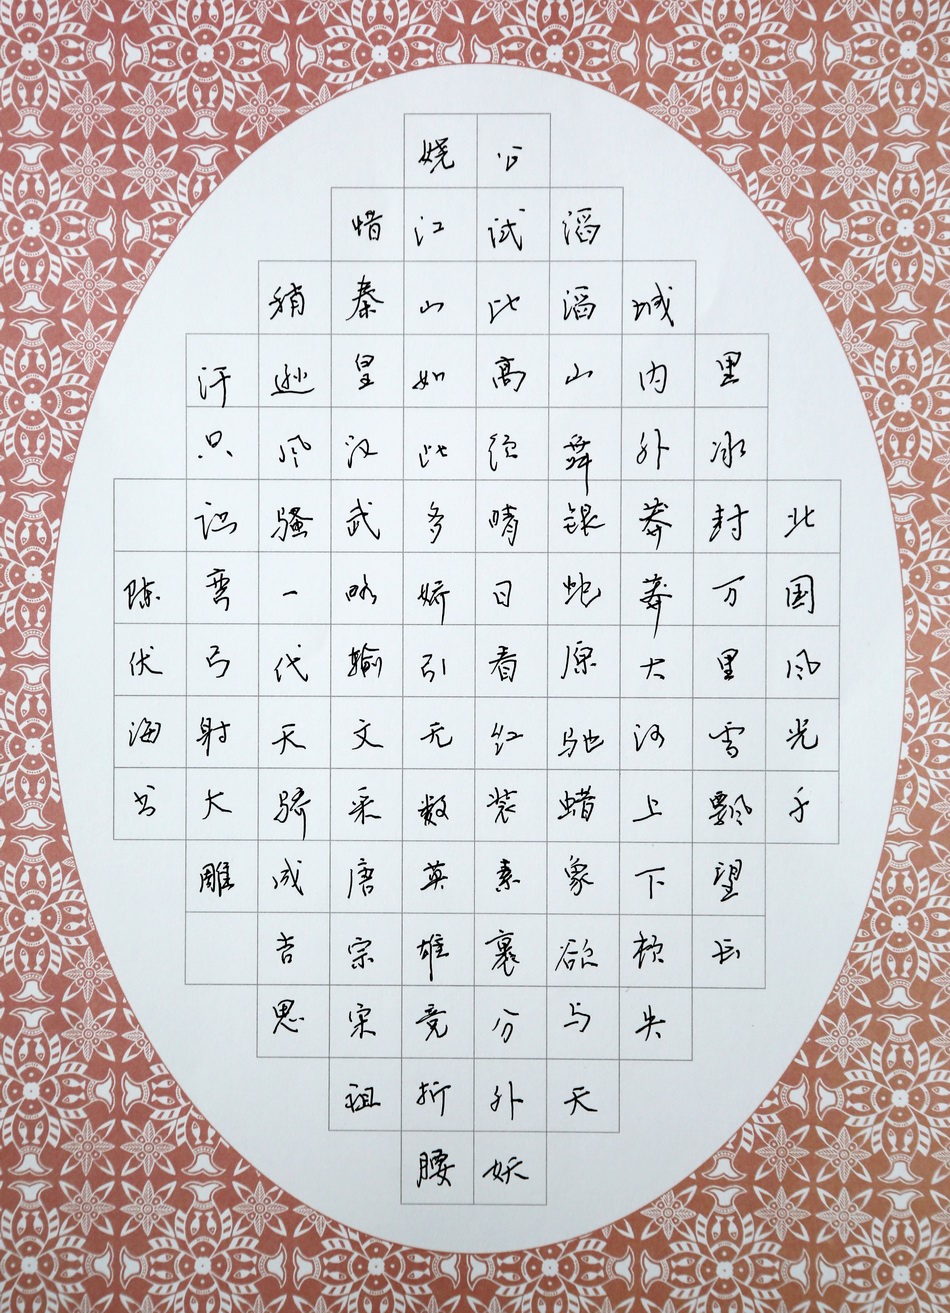 北国风光千
里冰封万里雪飘望长
城内外莽莽大河上下顿失
滔滔山舞银蛇原驰蜡象欲与天
公试比高须晴日看红装素裹分外妖
娆江山如此多娇引无数英雄竞折腰
惜秦皇汉武略输文采唐宗宋祖
稍逊风骚一代天骄成吉思
汗只识弯弓射大雕
陈伏海书